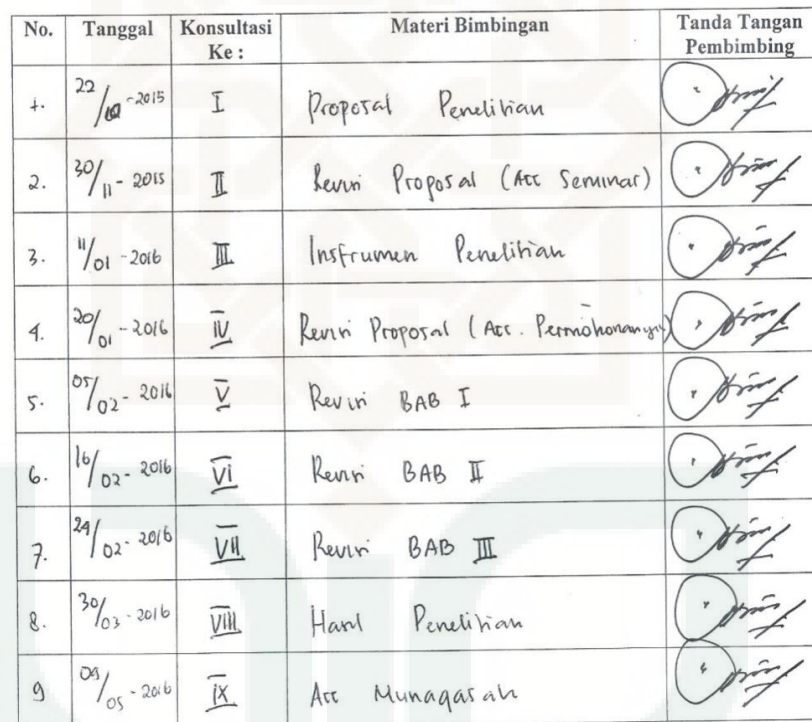 No. Tanggal Konsultasi Ke : Materi Bimbingan Tanda Tangan Pembimbing
1. 22/10-2015 I Proposal Penelitian
2. 30/11-2015 II Revisi Proposal (Acc Seminar)
3. 11/01-2016 III Instrumen Penelitian
4. 20/01-2016 IV Revisi Proposal (Acc. Permohonannya)
5. 05/02-2016 V Revisi BAB I
6. 16/02-2016 VI Revisi BAB II
7. 24/02-2016 VII Revisi BAB III
8. 30/03-2016 VIII Hasil Penelitian
9 09/05-2016 IX Acc Munaqasah